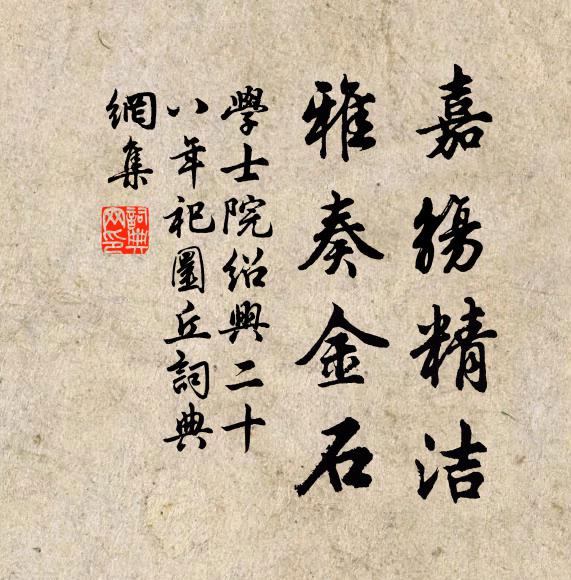 嘉觴精洁
雅奏金石
學士院紹興二十
八年祀圜丘詞典
網集
詞典
网印